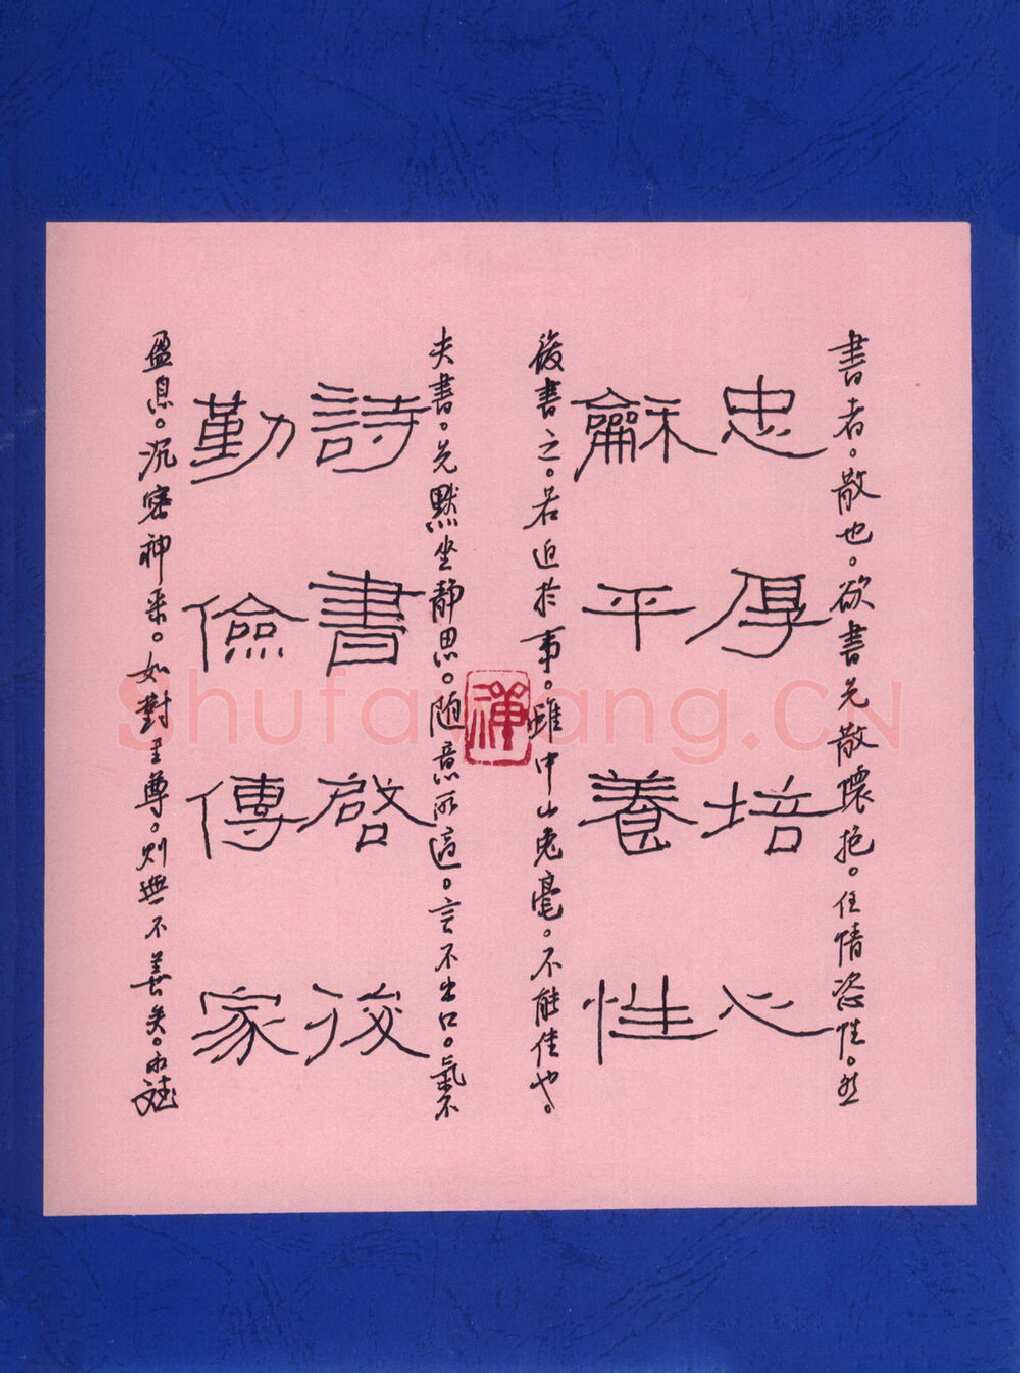 書者。散也。欲書先散懷抱。任情恣性。然
忠厚培心
龢平養性
後書之。若迫於事。雖中山兔毫。不能佳也。
夫書。先默坐靜思。随意所適。言不出口。氣不
詩書啓後
勤儉傳家
盈息。沉密神采。如對至尊。則無不善矣。
Shufawang.CN